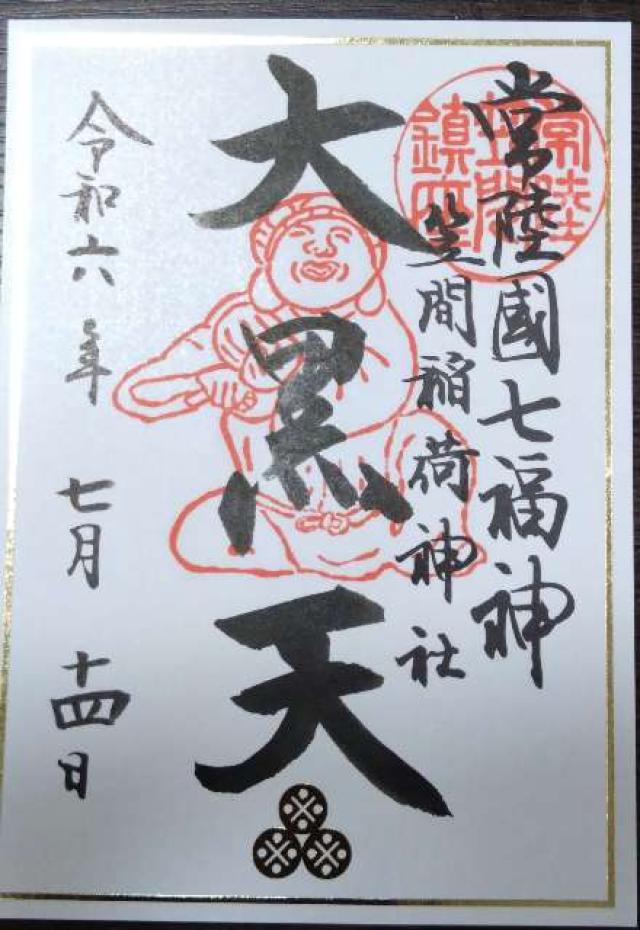 常陸國七福神
笠間稲荷神社
大黒天
令和六年 七月 十四日